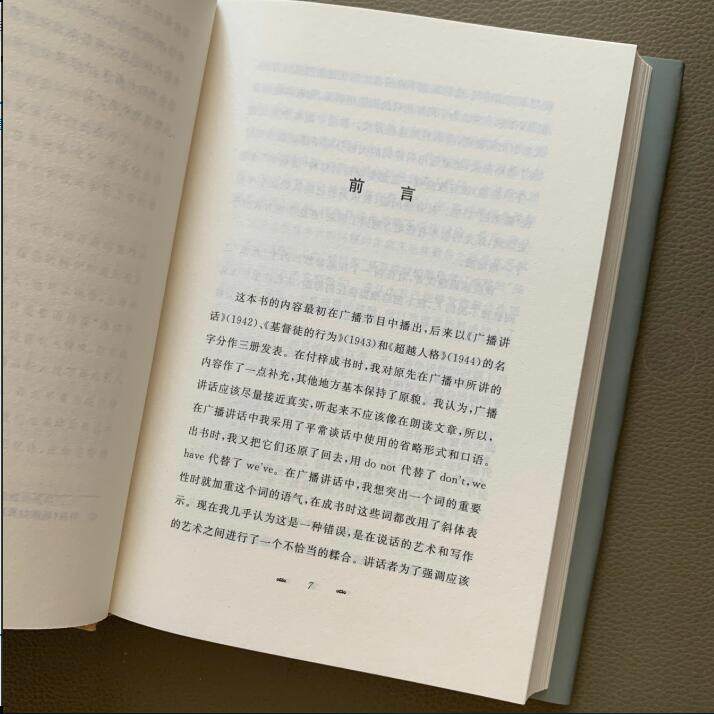 前 言
这本书的内容最初在广播节目中播出，后来以《广播讲
话》(1942)、《基督徒的行为》(1943)和《超越人格》(1944)的名
字分作三册发表。在付梓成书时，我对原先在广播中所讲的
内容作了一点补充，其他地方基本保持了原貌。我认为，广播
讲话应该尽量接近真实，听起来不应该像在朗读文章，所以，
在广播讲话中我采用了平常谈话中使用的省略形式和口语。
出书时，我又把它们还原了回去，用 do not 代替了 don't, we
have 代替了 we've。在广播讲话中，我想突出一个词的重要
性时就加重这个词的语气，在成书时这些词都改用了斜体表
示。现在我几乎认为这是一种错误，是在说话的艺术和写作
的艺术之间进行了一个不恰当的糅合。讲话者为了强调应该
7